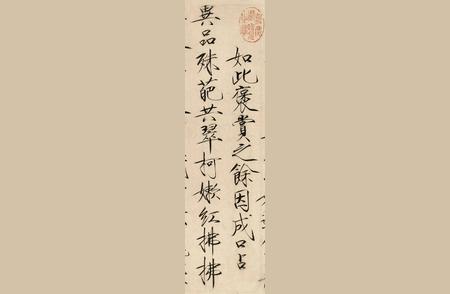 如此褒賞之餘因成口占
異品殊葩共翠柯嫩紅拂拂